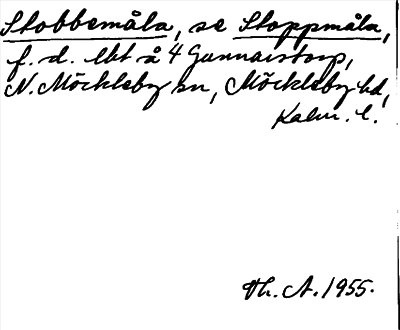 Stobbemåla, se Stoppmåla,
f. d. lht å 4 Gunnarstorp,
N. Möckleby sn, Möckleby hd,
Kalm. l.
Th. A. 1955.